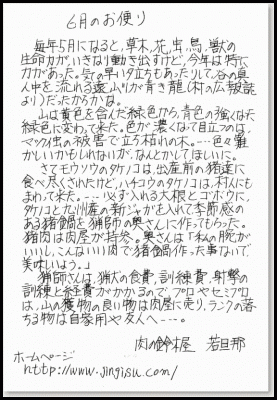 6月のお便り
毎年5月になると、草木、花、虫、鳥、獣の
生命力が、いきなり動き出すけど、今年は特に
力があった。気の早い夕立ちもあったりして、谷の真
ん中を流れる遠山川が青き龍(村の広報誌
より)だったからかな。
山は黄色を含んだ緑色から、青色の強くなった
緑色に変わって来た。色が濃くなって目立つのは、
マックイ虫の被害で立ち枯れの木。…色々難
かしいかもしれないが、なんとかしてほしいに。
さてモウソウのタケノコは、出産前の猪達に
食べ尽くされたけど、ハチコウのタケノコは、村人にも
まわって来た。---必ず入れる大根とゴボウに、
タケノコと九州産の新ジャガを入れて季節感の
ある猪鍋を猟師の奥さんに作ってもらった。
猪肉は肉屋が持参。奥さんは「私の腕が
いいし、こんないい肉で猪鍋作った事ないで、
美味いよう。」
猟師さんは、猟犬の食費、訓練費、射撃の
訓練と経費がかかるので、プロやセミプロ
は、山の獲物の良い物は肉屋に売り、ランクの落
ちる物は自家用や友人へ---。
肉の鈴木屋 若旦那
ホームページ
http://www.jingisu.com/